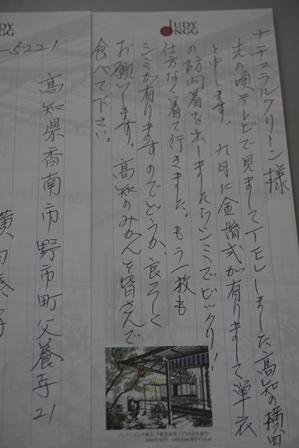 JUDY
ONGG
ナチュラルクリーン様
先の頃テレビで見ましてTELしました高知の横田
と申します。九月に金婚式が有りまして単衣
の訪問着を出しましたらシミでビックリ!
仕方なく着て行きました。もう一枚も
シミが有りますのでどうか宜そしく
お願いします。高知のみかんを皆さんで
食べて下さい。
JUDY
NGG
-5221
高知県香南市野市町父養寺21
横田